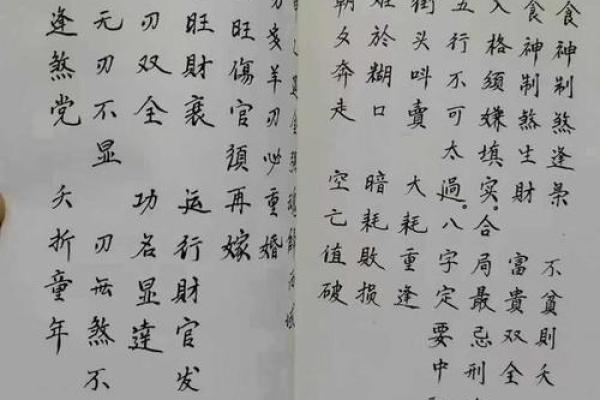 食神制煞逢枭 不貧則夭
食神制煞生財 富貴双全
入格须嫌填实。合局最忌刑
五行不可太過。八字定要中
街头叫賣 大耗重逢
於糊口 暗耗敗损
朝夕奔走 空亡值破
羊刃必重婚
旺傷官須再嫁
旺財衰 运行財官发
刃双全 功名显達
无刃不显 刃無煞不
逢煞党 夭折童年